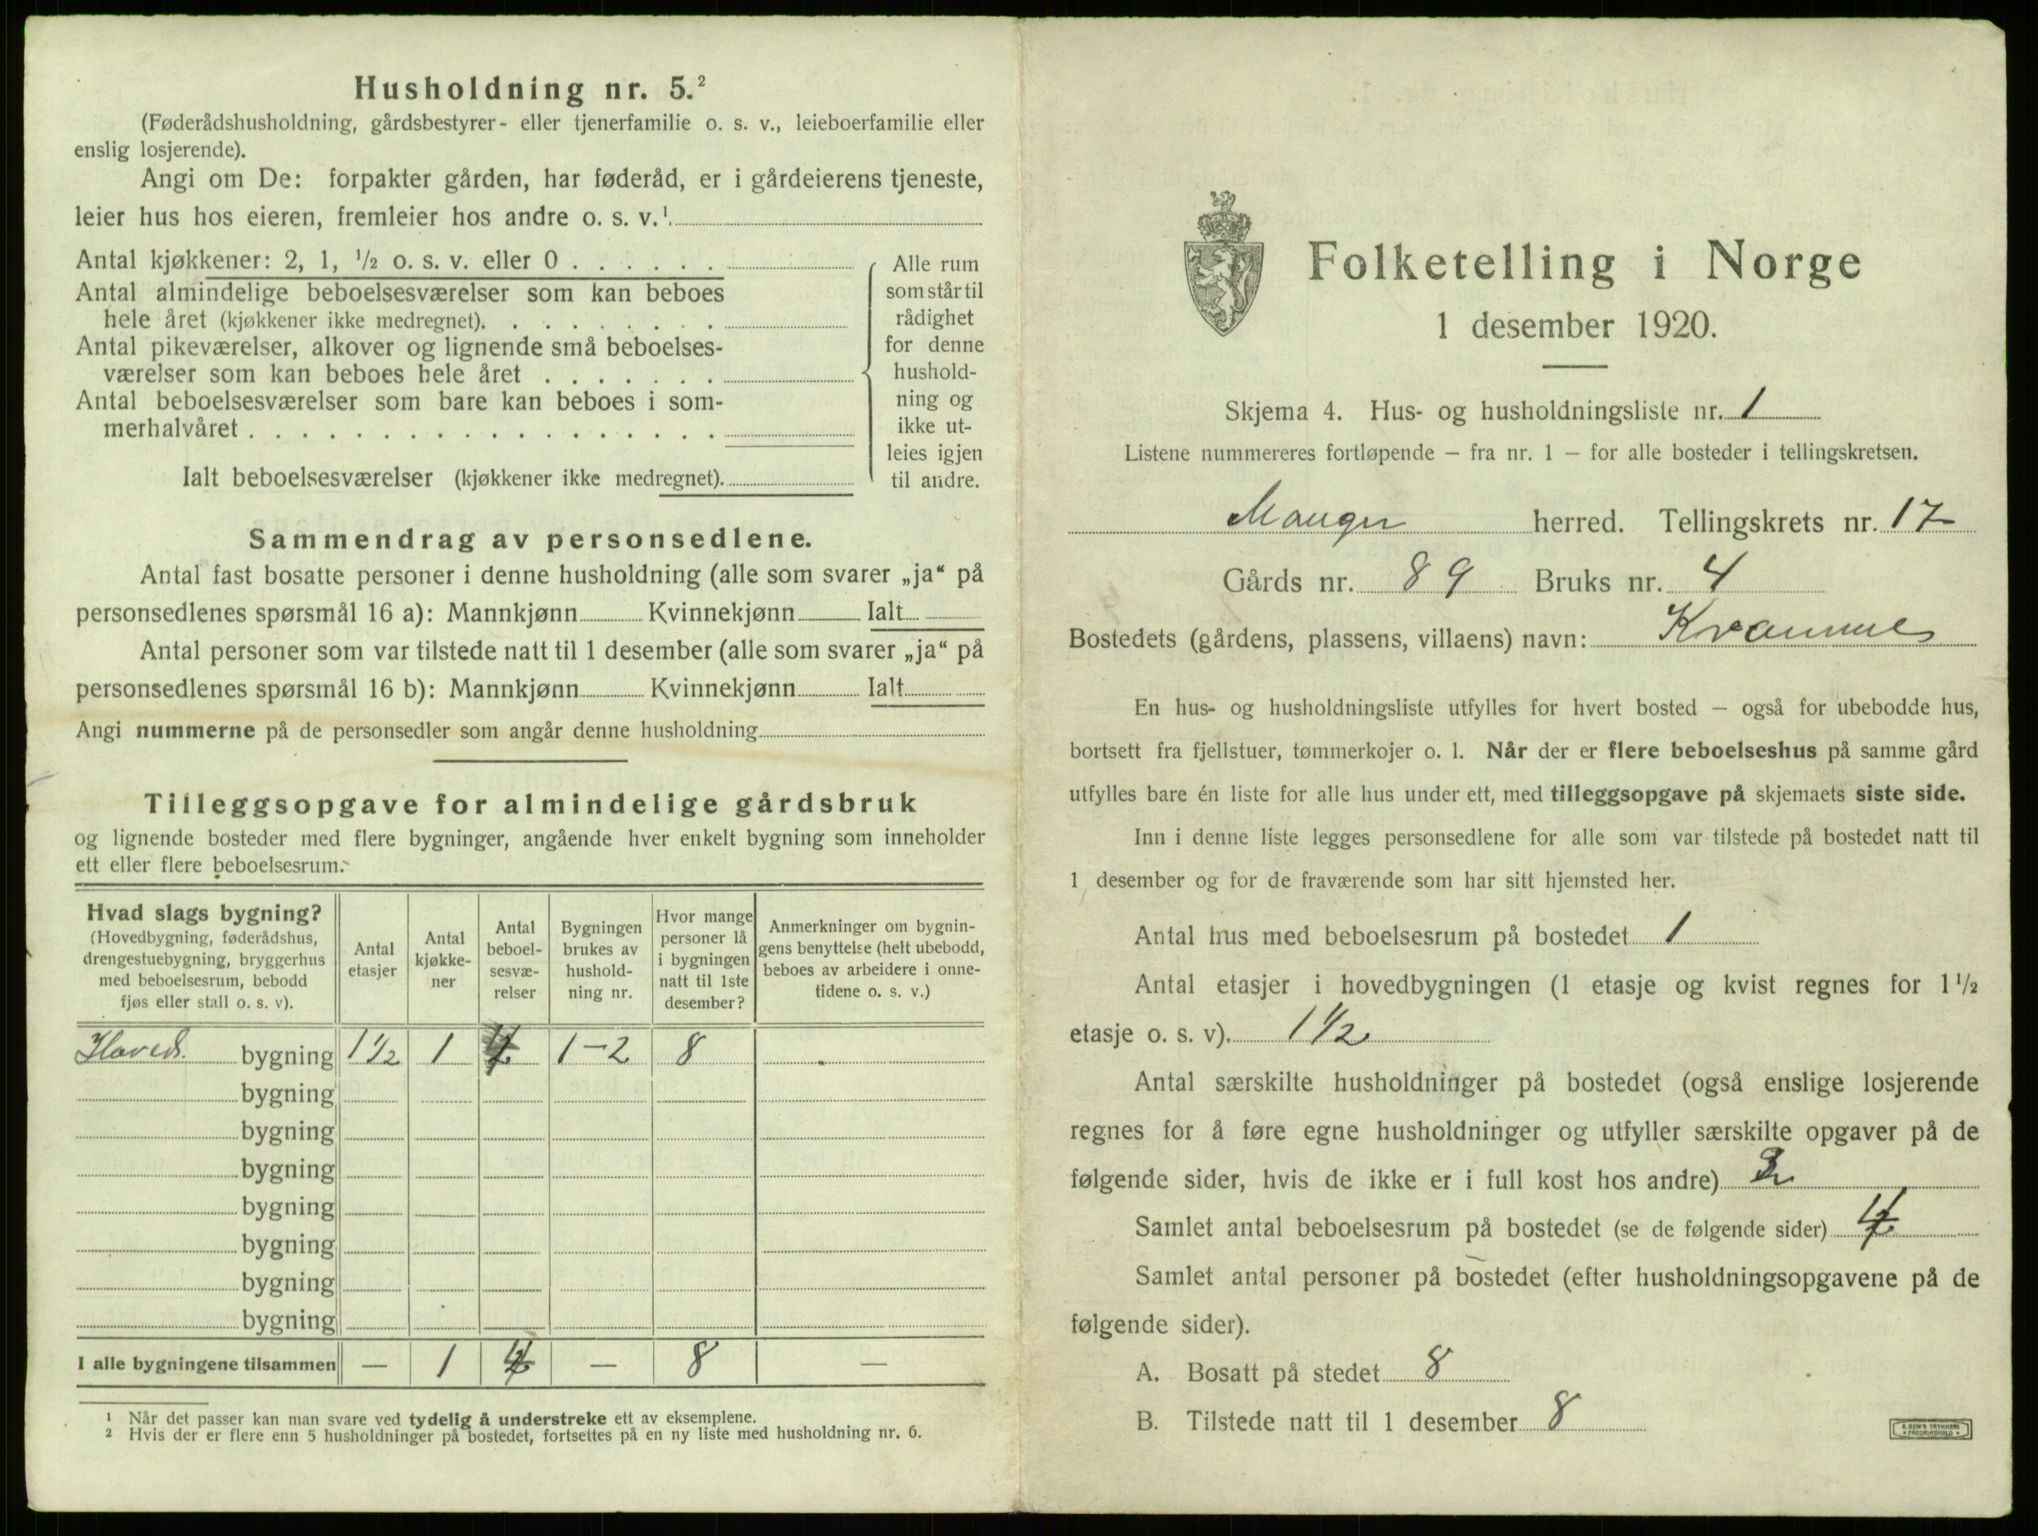 Husholdning nr. 5.²
(Føderådshusholdning, gårdsbestyrer- eller tjenerfamilie o. s. v., leieboerfamilie eller
enslig losjerende).
Angi om De: forpakter gården, har føderåd, er i gårdeierens tjeneste,
leier hus hos eieren, fremleier hos andre o. s. v.¹.
Antal kjøkkener: 2, 1, ½ o. s. v. eller 0 . . . . . .
Antal almindelige beboelsesværelser som kan beboes
hele året (kjøkkener ikke medregnet). . . . . . . . .
Antal pikeværelser, alkover og lignende små beboelses-
værelser som kan beboes hele året . . . . . . .
Antal beboelsesværelser som bare kan beboes i som-
merhalvåret . . . . . . . . . . . . . . . . . .
Ialt beboelsesværelser (kjøkkener ikke medregnet).
Alle rum
som står til
rådighet
for denne
hushold-
ning og
ikke ut-
leies igjen
til andre.
Sammendrag av personsedlene.
Antal fast bosatte personer i denne husholdning (alle som svarer „ja“ på
personsedlenes spørsmål 16 a): Mannkjønn Kvinnekjønn Ialt
Antal personer som var tilstede natt til 1 desember (alle som svarer „ja“ på
personsedlenes spørsmål 16 b): Mannkjønn Kvinnekjønn Ialt
Angi nummerne på de personsedler som angår denne husholdning
Tilleggsopgave for almindelige gårdsbruk
og lignende bosteder med flere bygninger, angående hver enkelt bygning som inneholder
ett eller flere beboelsesrum.
Hvad slags bygning?
(Hovedbygning, føderådshus,
drengestuebygning, bryggerhus
med beboelsesrum, bebodd
fjøs eller stall o. s. v).
Antal
etasjer
Antal
kjøkke-
ner
Antal
beboel-
sesvæ-
relser
Bygningen
brukes av
hushold-
ning nr.
Hvor mange
personer lå
i bygningen
natt til 1ste
desember?
Anmerkninger om bygnin-
gens benyttelse (helt ubebodd,
beboes av arbeidere i onne-
tidene o. s. v.)
Hoved. bygning 1½ 1 4 1-2 8
bygning
bygning
bygning
bygning
bygning
bygning
bygning
I alle bygningene tilsammen — 1 4 — 8 —
¹ Når det passer kan man svare ved tydelig å understreke ett av eksemplene.
² Hvis der er flere enn 5 husholdninger på bostedet, fortsettes på en ny liste med husholdning nr. 6.
Folketelling i Norge
1 desember 1920.
Skjema 4. Hus- og husholdningsliste nr. 1
Listene nummereres fortløpende – fra nr. 1 – for alle bosteder i tellingskretsen.
Manger herred. Tellingskrets nr. 17
Gårds nr. 89 Bruks nr. 4
Bostedets (gårdens, plassens, villaens) navn: Kvamme
En hus- og husholdningsliste utfylles for hvert bosted – også for ubebodde hus,
bortsett fra fjellstuer, tømmerkojer o. l. Når der er flere beboelseshus på samme gård
utfylles bare én liste for alle hus under ett, med tilleggsopgave på skjemaets siste side.
Inn i denne liste legges personsedlene for alle som var tilstede på bostedet natt til
1 desember og for de fraværende som har sitt hjemsted her.
Antal hus med beboelsesrum på bostedet 1
Antal etasjer i hovedbygningen (1 etasje og kvist regnes for 1½
etasje o. s. v). 1½
Antal særskilte husholdninger på bostedet (også enslige losjerende
regnes for å føre egne husholdninger og utfyller særskilte opgaver på de
følgende sider, hvis de ikke er i full kost hos andre) 2
Samlet antal beboelsesrum på bostedet (se de følgende sider) 4
Samlet antal personer på bostedet (efter husholdningsopgavene på de
følgende sider).
A. Bosatt på stedet 8
B. Tilstede natt til 1 desember 8